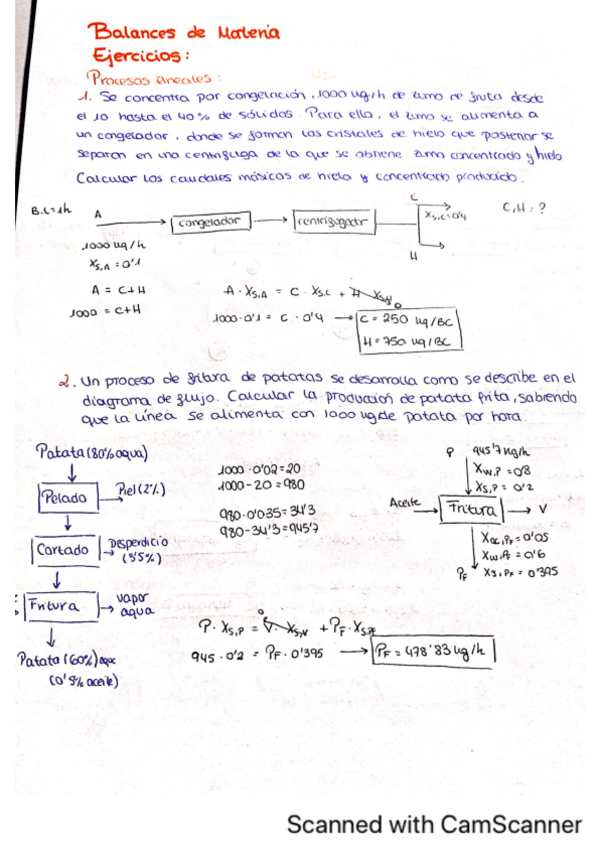 Balances de Materia
Ejercicios:
Procesos lineales:
1. Se concentra por congelación, 1000 kg/h de zumo de fruta desde
el 10 hasta el 40% de sólidos. Para ello, el zumo se alimenta a
un congelador, donde se forman los cristales de hielo que posterior se
separan en una centrifuga de la que se obtiene zumo concentrado y hielo
Calcular los caudales másicos de hielo y concentrado producido.
B.C=1h
A
congelador
centrifugador
C
X_S,C=0'4
H
C,H=?
1000 kg/h
X_S,A=0'1
A = C+H
1000 = C+H
A·X_S,A = C·X_S,C + H·X_S,H 0
1000·0'1 = C·0'4
C = 250 kg/BC
H = 750 kg/BC
2. Un proceso de fritura de patatas se desarrolla como se describe en el
diagrama de flujo. Calcular la producción de patata frita, sabiendo
que la línea se alimenta con 1000 kg de patata por hora.
Patata (80% agua)
Pelado
Piel (2%)
Cortado
Desperdicio
(3'5%)
Fritura
vapor
agua
Patata (60%)
(0'5% aceite)
1000·0'02=20
1000-20=980
980·0'035=34'3
980-34'3=945'7
P 945'7 kg/h
X_W,P=0'8
X_S,P=0'2
Aceite
Fritura
V
X_AC,PF=0'005
X_S,PF=0'395
P_F
P·X_S,P = V·X_S,V 0 + P_F·X_S,PF
945·0'2 = P_F·0'395
P_F=478'83 kg/h
Scanned with CamScanner